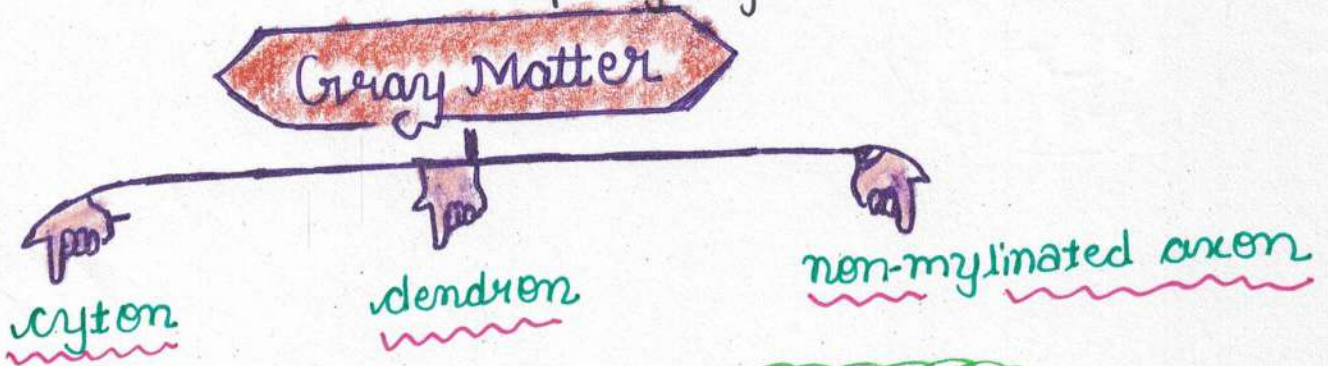 Gray Matter
cyton
dendron
non-mylinated axon